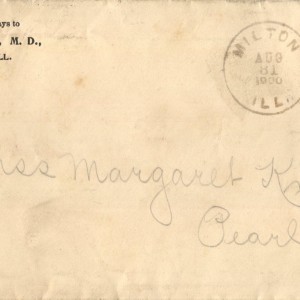 ays to
, M. D.,
LL.
MILTON
AUG
ILL.
iss Margaret K
Pearl